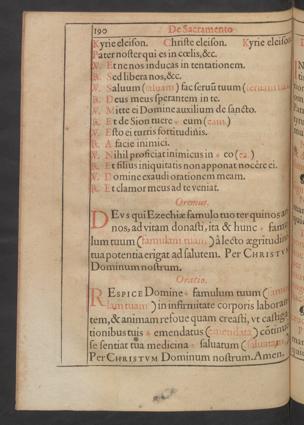 190 De Sacramento
Kyrie eleison. Christe eleison. Kyrie eleison.
Pater noster qui es in cœlis, &c.
V. Et ne nos inducas in tentationem.
R. Sed libera nos, &c.
V. Saluum (saluam) fac seruũ tuum (
R. Deus meus sperantem in te.
V. Mitte ei Domine auxilium de sancto.
R. Et de Sion tuere + eum (eam)
V. Esto ei turris fortitudinis.
R. A facie inimici.
V. Nihil proficiat inimicus in + eo (ea)
R. Et filius iniquitatis non apponat nocere ei.
V. Domine exaudi orationem meam.
R. Et clamor meus ad te veniat.
Oremus.
DEvs qui Ezechiæ famulo tuo ter quinos an
nos, ad vitam donasti, ita & hunc + famu
lum tuum (famulam tuam) à lecto ægritudinis
tua potentia erigat ad salutem. Per CHRISTVM
Dominum nostrum.
Oratio.
RESPICE Domine + famulum tuum (famu
lam tuam) in infirmitate corporis laboran
tem, & animam refoue quam creasti, vt castiga
tionibus tuis + emendatus (emendata) cõtinuò
se sentiat tua medicina + saluatum (saluatam)
Per CHRISTVM Dominum nostrum. Amen.